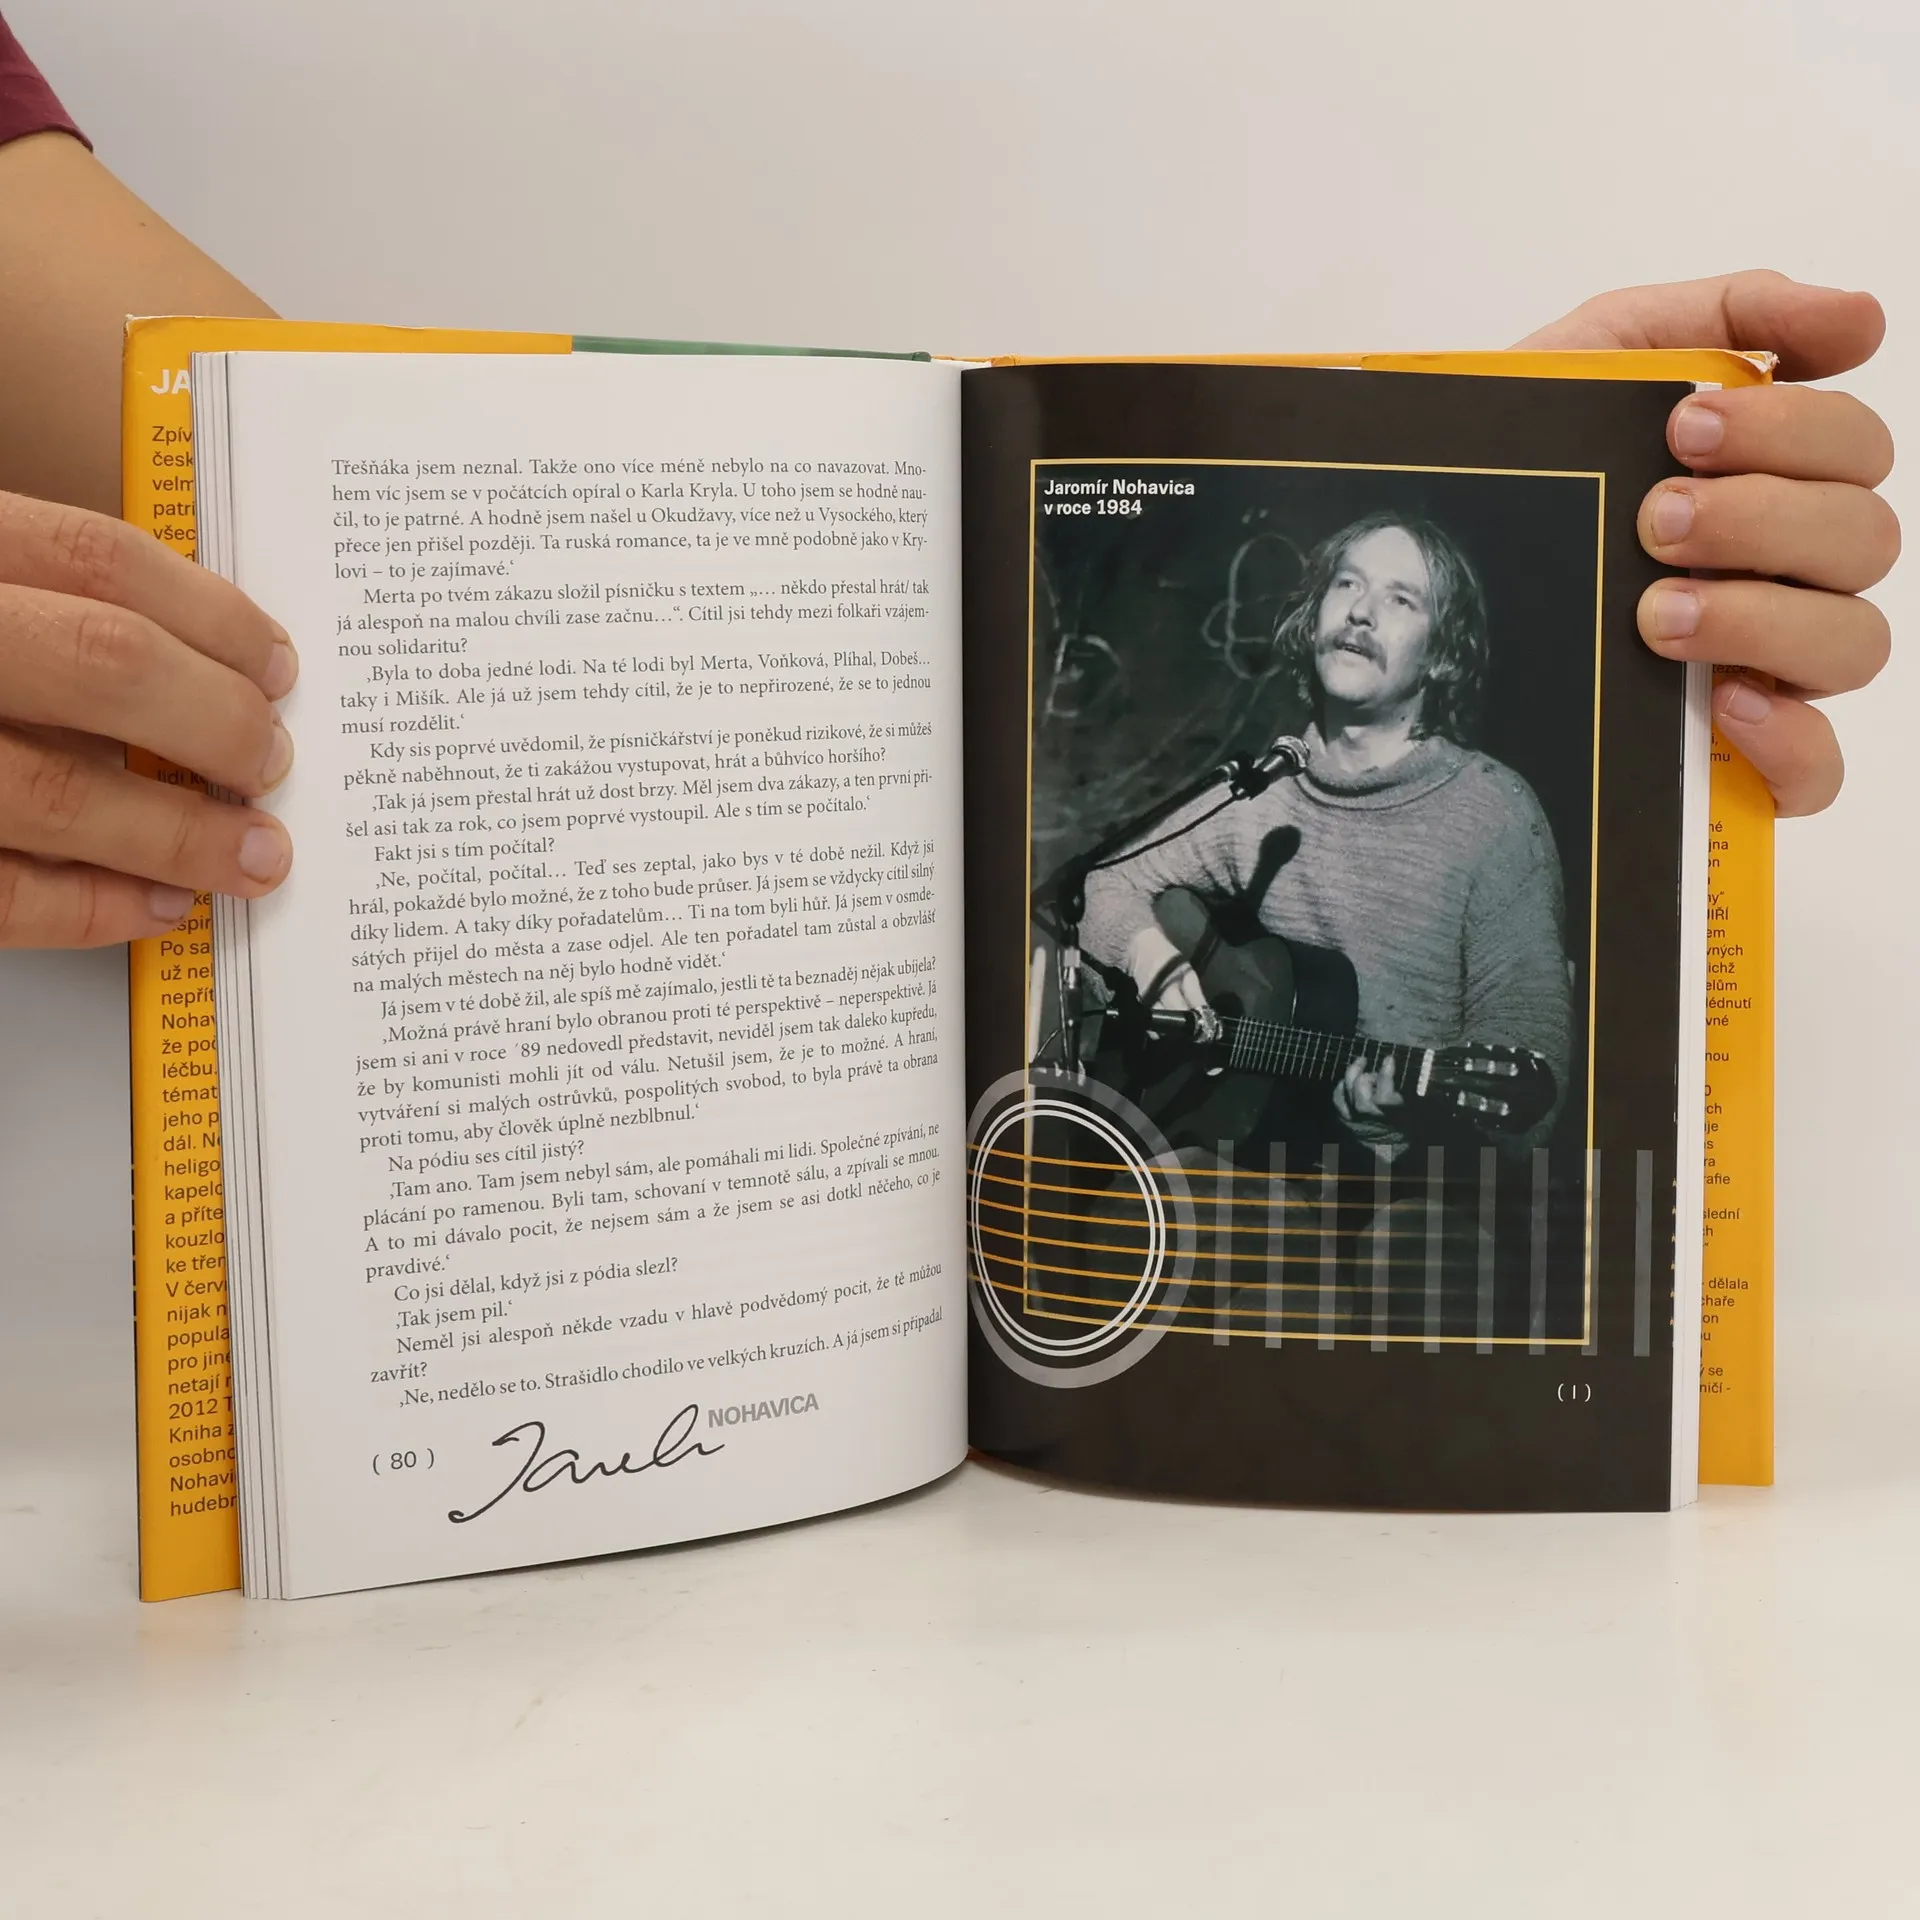 JA
Zpív
česk
velm
patri
všec
Po sa
už nel
nepřít
Nohav
že poč
léčbu.
témat
jeho p
dál. Ne
heligo
kapelo
a příte
kouzlo
ke třem
V červ
nijak n
popula
pro jiné
netají r
2012 T
Kniha z
osobno
Nohavi
hudebn
Třešňáka jsem neznal. Takže ono více méně nebylo na co navazovat. Mno-
hem víc jsem se v počátcích opíral o Karla Kryla. U toho jsem se hodně nau-
čil, to je patrné. A hodně jsem našel u Okudžavy, více než u Vysockého, který
přece jen přišel později. Ta ruská romance, ta je ve mně podobně jako v Kry-
lovi – to je zajímavé.‘
Merta po tvém zákazu složil písničku s textem „… někdo přestal hrát/ tak
já alespoň na malou chvíli zase začnu…“. Cítil jsi tehdy mezi folkaři vzájem-
nou solidaritu?
‚Byla to doba jedné lodi. Na té lodi byl Merta, Voňková, Plíhal, Dobeš...
taky i Mišík. Ale já už jsem tehdy cítil, že je to nepřirozené, že se to jednou
musí rozdělit.‘
Kdy sis poprvé uvědomil, že písničkářství je poněkud rizikové, že si můžeš
pěkně naběhnout, že ti zakážou vystupovat, hrát a bůhvíco horšího?
‚Tak já jsem přestal hrát už dost brzy. Měl jsem dva zákazy, a ten první při-
šel asi tak za rok, co jsem poprvé vystoupil. Ale s tím se počítalo.‘
Fakt jsi s tím počítal?
‚Ne, počítal, počítal… Teď ses zeptal, jako bys v té době nežil. Když jsi
hrál, pokaždé bylo možné, že z toho bude průser. Já jsem se vždycky cítil silný
díky lidem. A taky díky pořadatelům… Ti na tom byli hůř. Já jsem v osmde-
sátých přijel do města a zase odjel. Ale ten pořadatel tam zůstal a obzvlášť
na malých městech na něj bylo hodně vidět.‘
Já jsem v té době žil, ale spíš mě zajímalo, jestli tě ta beznaděj nějak ubíjela?
‚Možná právě hraní bylo obranou proti té perspektivě – neperspektivě. Já
jsem si ani v roce ´89 nedovedl představit, neviděl jsem tak daleko kupředu,
že by komunisti mohli jít od válu. Netušil jsem, že je to možné. A hraní,
vytváření si malých ostrůvků, pospolitých svobod, to byla právě ta obrana
proti tomu, aby člověk úplně nezblbnul.‘
Na pódiu ses cítil jistý?
‚Tam ano. Tam jsem nebyl sám, ale pomáhali mi lidi. Společné zpívání, ne
plácání po ramenou. Byli tam, schovaní v temnotě sálu, a zpívali se mnou.
A to mi dávalo pocit, že nejsem sám a že jsem se asi dotkl něčeho, co je
pravdivé.‘
Co jsi dělal, když jsi z pódia slezl?
‚Tak jsem pil.‘
Neměl jsi alespoň někde vzadu v hlavě podvědomý pocit, že tě můžou
zavřít?
‚Ne, nedělo se to. Strašidlo chodilo ve velkých kruzích. A já jsem si připadal
( 80 )
Jarek
NOHAVICA
Jaromír Nohavica
v roce 1984
( I )
mu
né
jna
on
ny“
JIŘÍ
em
vných
ichž
elům
lédnutí
vné
nou
ch
je
ra
rafie
slední
ch
dělala
chaře
on
ý se
ničí -